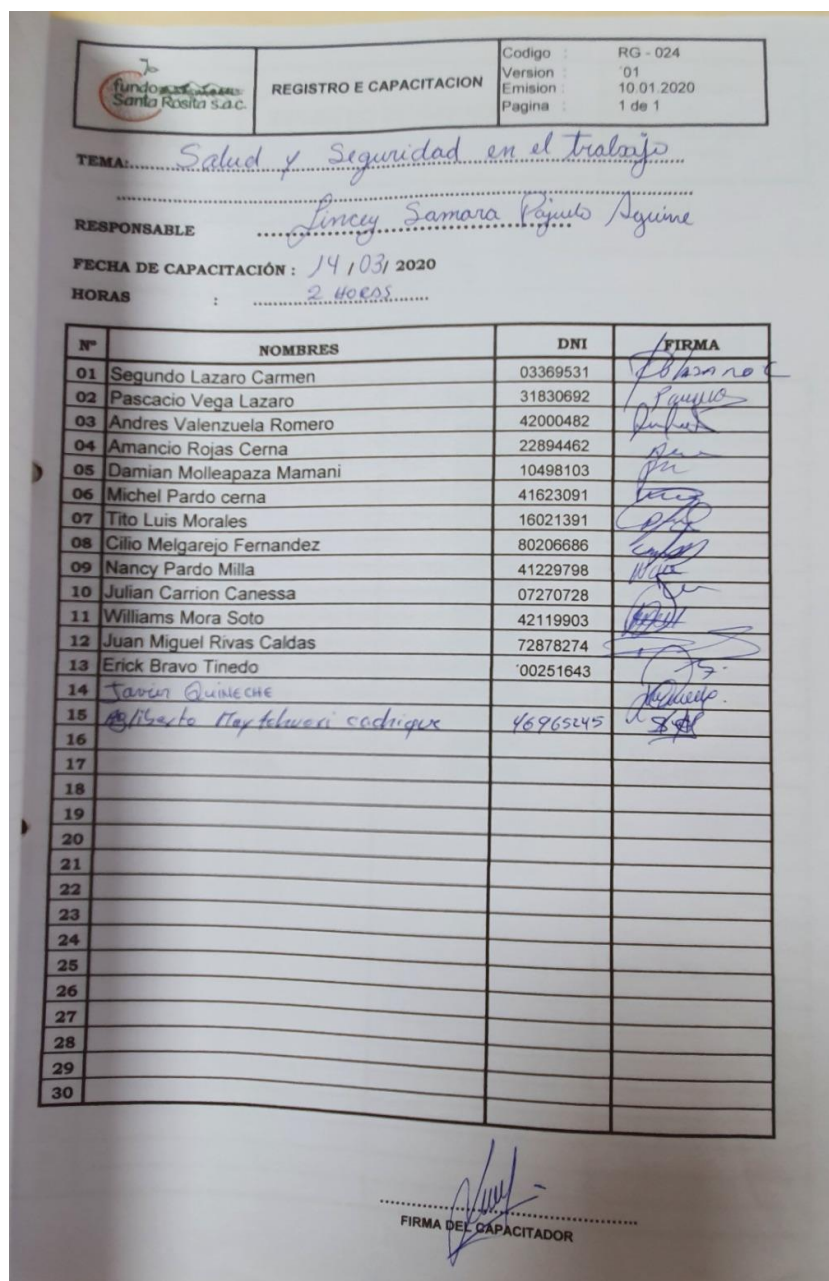 fundo
Santa Rosita s.a.c.
REGISTRO E CAPACITACION
Codigo : RG - 024
Version : '01
Emision : 10.01.2020
Pagina : 1 de 1
TEMA: Salud y Seguridad en el trabajo
RESPONSABLE Lincey Samara Pajuelo Aguirre
FECHA DE CAPACITACIÓN : 14 / 03 / 2020
HORAS : 2 HORAS
Nº NOMBRES DNI FIRMA
01 Segundo Lazaro Carmen 03369531
02 Pascacio Vega Lazaro 31830692
03 Andres Valenzuela Romero 42000482
04 Amancio Rojas Cerna 22894462
05 Damian Molleapaza Mamani 10498103
06 Michel Pardo cerna 41623091
07 Tito Luis Morales 16021391
08 Cilio Melgarejo Fernandez 80206686
09 Nancy Pardo Milla 41229798
10 Julian Carrion Canessa 07270728
11 Williams Mora Soto 42119903
12 Juan Miguel Rivas Caldas 72878274
13 Erick Bravo Tinedo '00251643
14 Javier QUINECHE
15 46965245
16
17
18
19
20
21
22
23
24
25
26
27
28
29
30
FIRMA DEL CAPACITADOR